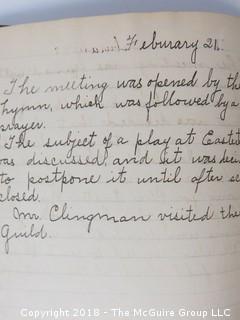 Feburary 21.
The meeting was opened by the
hymn, which was followed by a
prayer.
The subject of a play at Easter
was discussed, and it was deci
to postpone it until after sc
closed.
Mr. Clingman visited the
Guild.
Copyright 2018 - The McGuire Group LLC